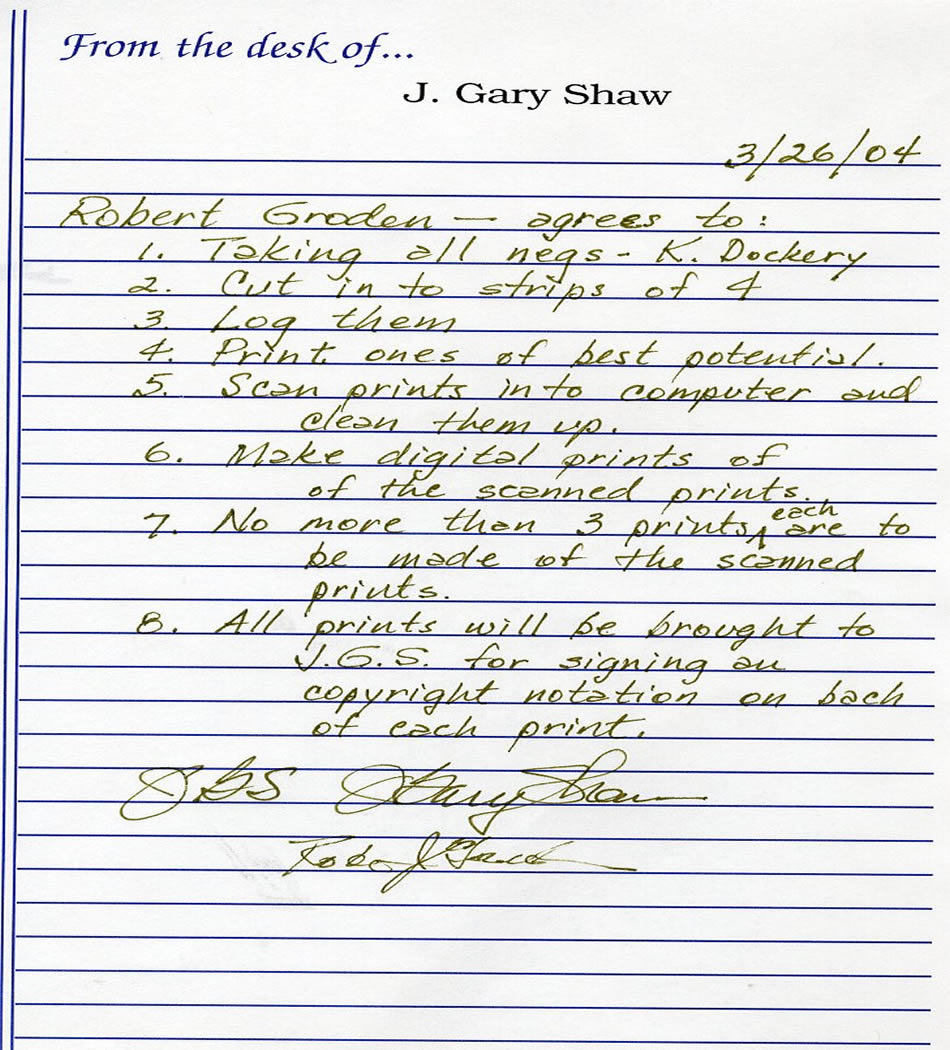 From the desk of...
J. Gary Shaw
3/26/04
Robert Groden — agrees to:
1. Taking all negs - K. Dockery
2. Cut in to strips of 4
3. Log them
4. Print ones of best potential.
5. Scan prints in to computer and
clean them up.
6. Make digital prints of
of the scanned prints.
7. No more than 3 prints each are to
be made of the scanned
prints.
8. All prints will be brought to
J.G.S. for signing an
copyright notation on back
of each print.
JGS J Gary Shaw
Robert J Groden